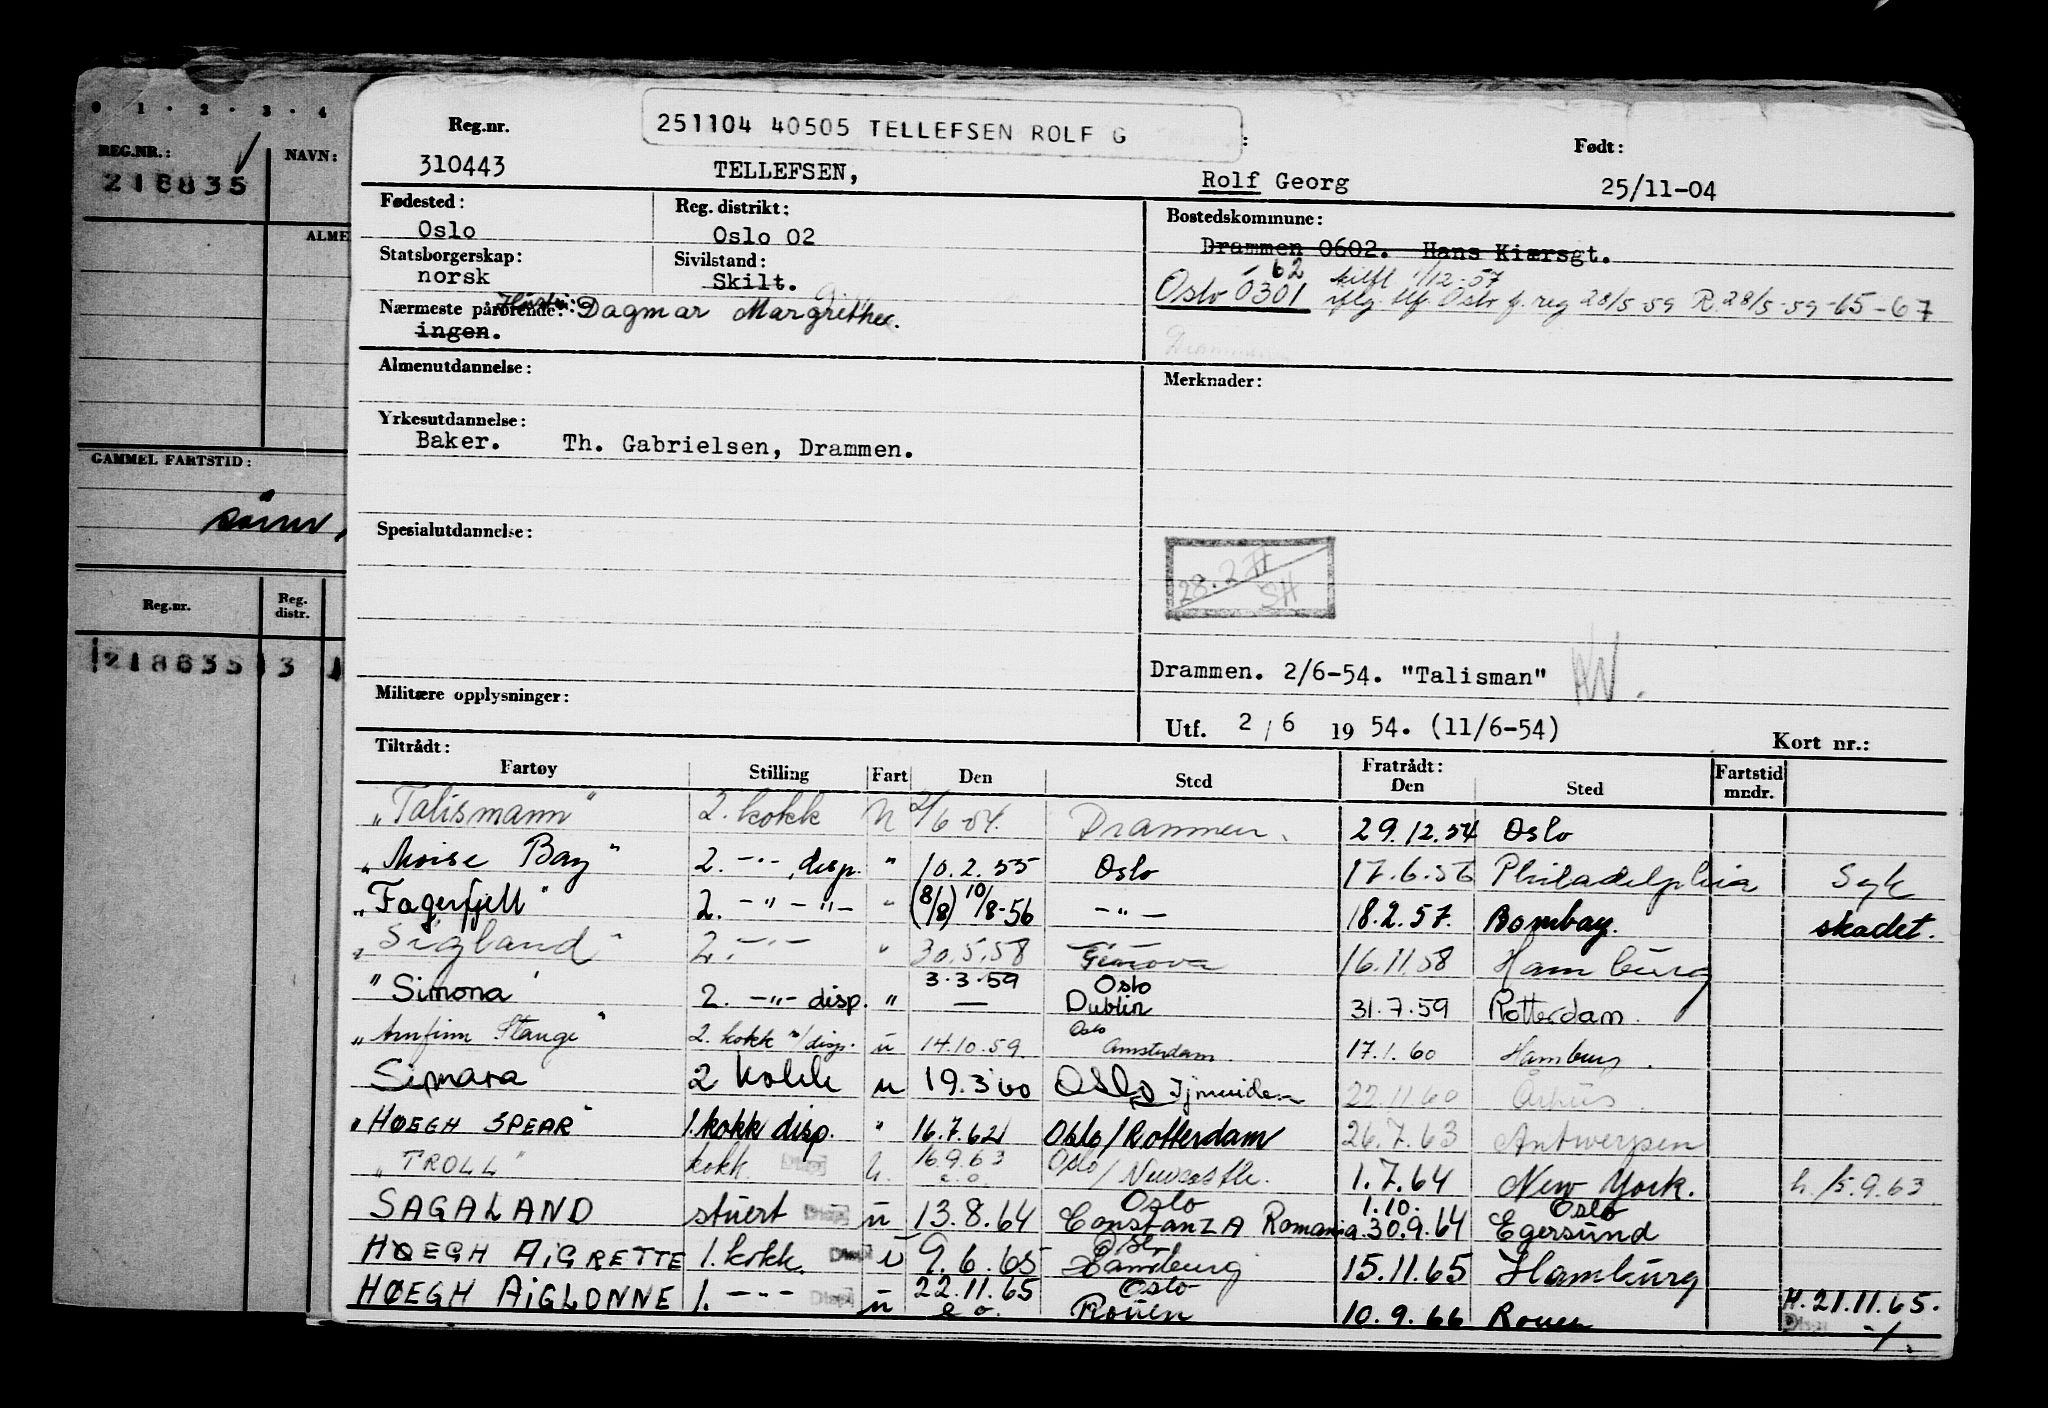 0 · 1 · 2 · 3 · 4
REG.NR.:
NAVN:
218835
ALME
GAMMEL FARTSTID:
Reg.nr.
Reg. distr.
218835 3
251104 40505 TELLEFSEN ROLF G
Reg.nr.
:
Født:
310443
TELLEFSEN,
Rolf Georg
25/11-04
Fødested:
Reg. distrikt:
Bostedskommune:
Oslo
Oslo 02
Drammen 0602. Hans Kiærsgt.
Statsborgerskap:
Sivilstand:
62
norsk
Skilt.
Oslo 0301
1/12-57
iflg. tlf. Oslo f. reg 28/5-59 R. 28/5-59-65-67
Nærmeste pårørende: Hustru: Dagmar Margrethe.
ingen.
Almenutdannelse:
Merknader:
Yrkesutdannelse:
Baker. Th. Gabrielsen, Drammen.
Spesialutdannelse:
28.2
SH
Drammen. 2/6-54. "Talisman"
Militære opplysninger:
Utf. 2/6 1954. (11/6-54)
Kort nr.:
Tiltrådt:
Fratrådt:
Fartøy Stilling Fart Den Sted Den Sted Fartstid mndr.
„Talismann" 2. kokk N 2/6-54. Drammen. 29.12.54 Oslo
„Moise Bay" 2. -"- disp. " 10.2.55 Oslo 17.6.56 Philadelphia Syk
„Fagerfjell" 2. -"-"- " (8/8) 10/8-56 -"- 18.2.57. Bombay. skadet.
„Sigland" 2. -"- " 30.5.58 Genova 16.11.58 Hamburg
3.3.59 Oslo
"Simona" 2. -"- disp. " — Dublin 31.7.59 Rotterdam.
„Arnfinn Stange" 2. kokk m/disp. u 14.10.59. Oslo Amsterdam. 17.1.60 Hamburg.
Simara 2 kokk u 19.3.60 Oslo Ijmuiden 22.11.60 Århus.
"HØEGH SPEAR" 1. kokk disp. " 16.7.62 Oslo/Rotterdam 26.7.63 Antwerpen
„TROLL" kokk Disp u. 16.9.63 e.o. Oslo/Newcastle. 1.7.64 New York. h. 15.9.63
Oslo 1.10. Oslo
SAGALAND stuert Disp u 13.8.64 Constanza Romania 30.9.64 Egersund
HØEGH AIGRETTE 1. kokk. Disp u 9.6.65 Oslo Hamburg 15.11.65 Hamburg
HØEGH AIGLONNE 1. -"- Disp u 22.11.65 e.o. Oslo Rouen 10.9.66 Rouen H. 21.11.65.
Disp